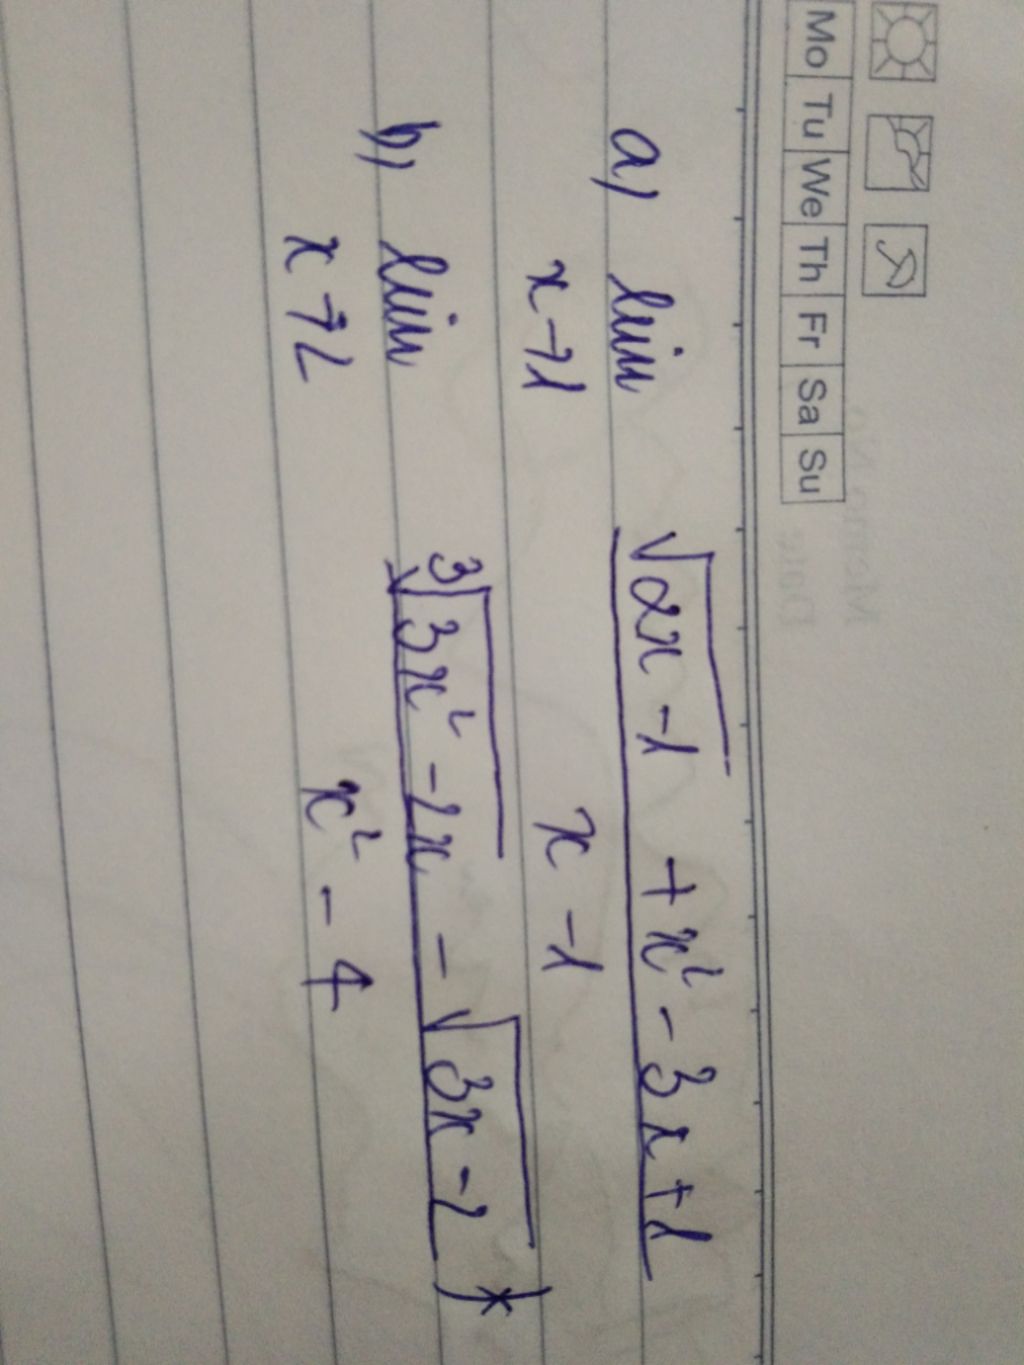 Mo Tu We Th Fr Sa Su
a) lim √(2x-1) + x² - 3x + 1
x→1 x - 1
b) lim ∛(3x² - 2x) - √(3x-2) )*
x→2 x² - 4